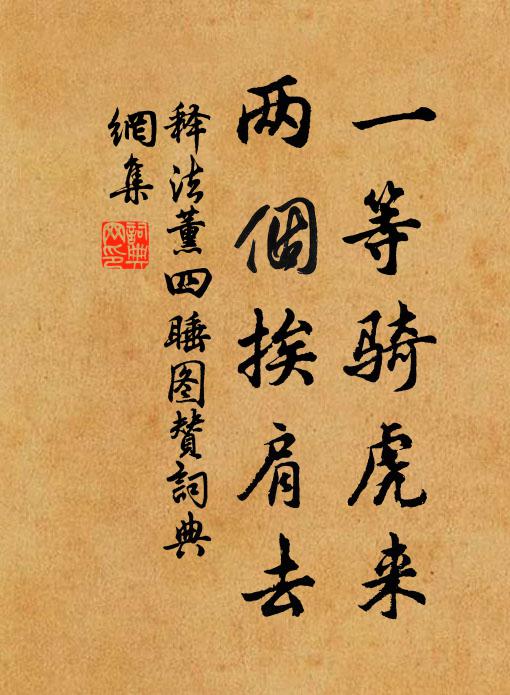 一等骑虎来
两個挨肩去
释法薰四睡图赞詞典
網集
詞典
网印